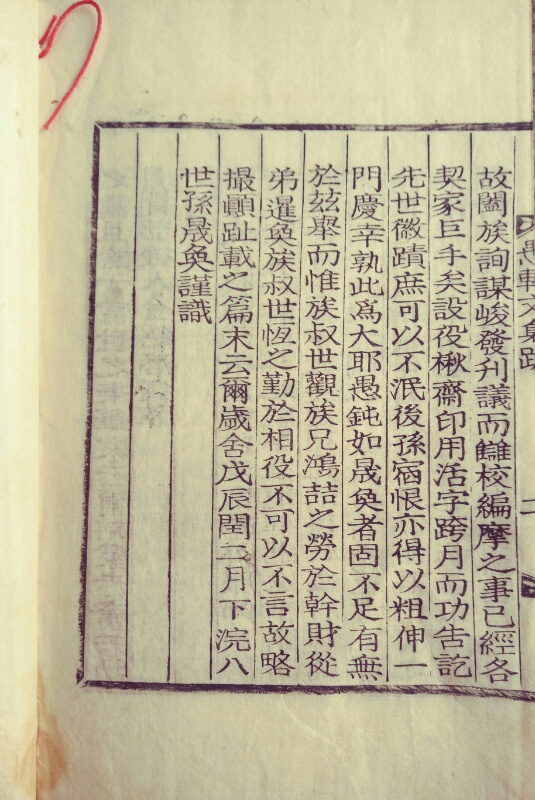 愚軒文集跋
二
故闔族詢謀峻發刋議而讎校編摩之事已經各
契家巨手矣設役楸齋印用活字跨月而功告訖
先世徽蹟庶可以不泯後孫宿恨亦得以粗伸一
門慶幸孰此爲大耶愚鈍如晟奐者固不足有無
於玆擧而惟族叔世觀族兄鴻喆之勞於幹財從
弟暹奐族叔世恆之勤於相役不可以不言故略
撮顚趾載之篇末云爾歲舍戊辰閏二月下浣八
世孫晟奐謹識